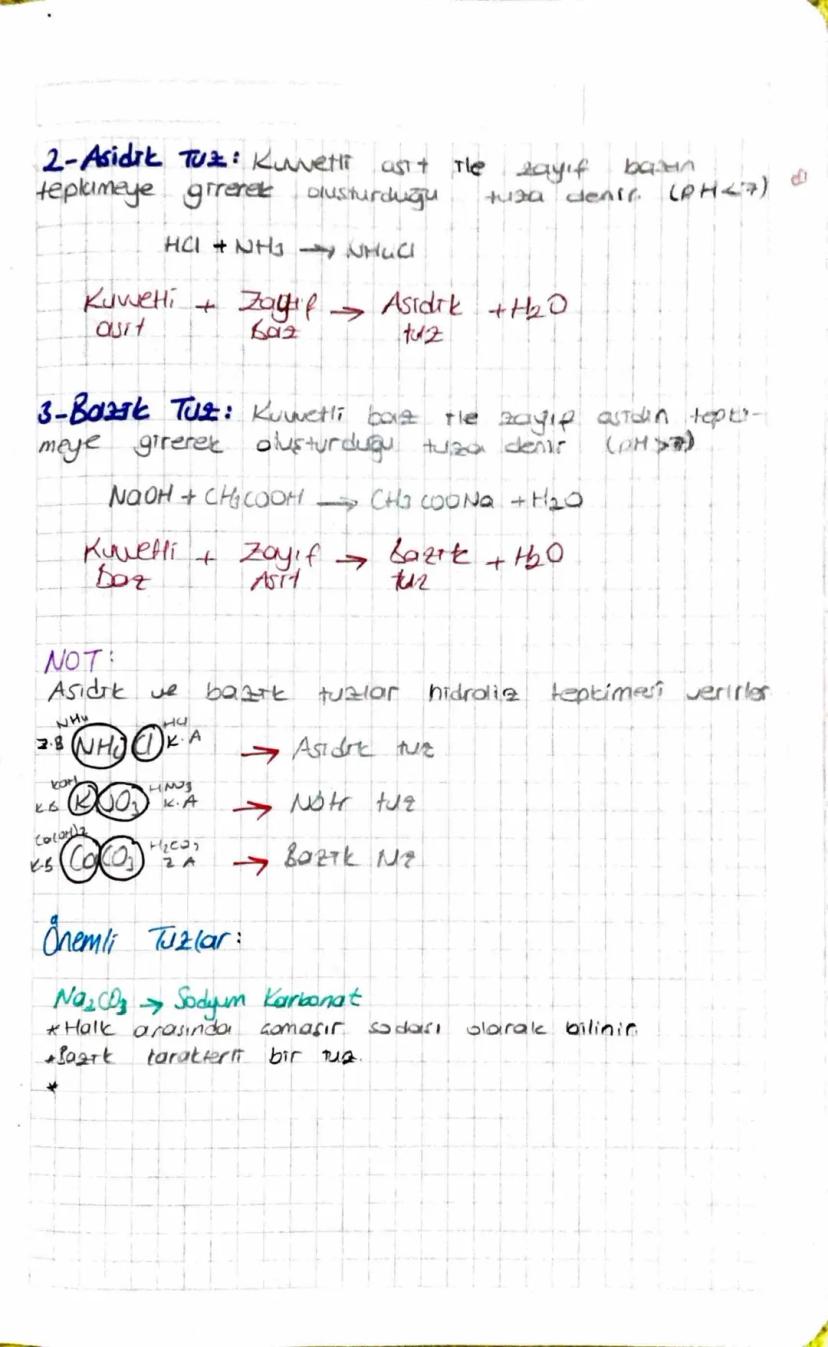 2-Asidik Tuz: Kuvvetli asit ile zayıf bazın
tepkimeye girerek oluşturduğu tuza denir. (PH<7)
HCl + NH3 → NH4Cl
Kuvvetli + Zayıf → Asidik + H2O
asit baz tuz
3-Bazik Tuz: Kuvvetli baz ile zayıf asidin tepki-
meye girerek oluşturduğu tuza denir (pH>7)
NaOH + CH3COOH → CH3COONa + H2O
Kuvvetli + Zayıf → Bazik + H2O
Baz Asit tuz
NOT:
Asidik ve bazik tuzlar hidroliz tepkimesi verirler
NH4 HCl
Z.B NH4 Cl K.A → Asidik tuz
KOH HNO3
K.B K NO3 K.A → Nötr tuz
Ca(OH)2 H2CO3
K.B Ca CO3 Z A → Bazik tuz
Önemli Tuzlar:
Na2CO3 → Sodyum Karbonat
*Halk arasında çamaşır sodası olarak bilinir.
*Bazik karakterli bir tuz.
*